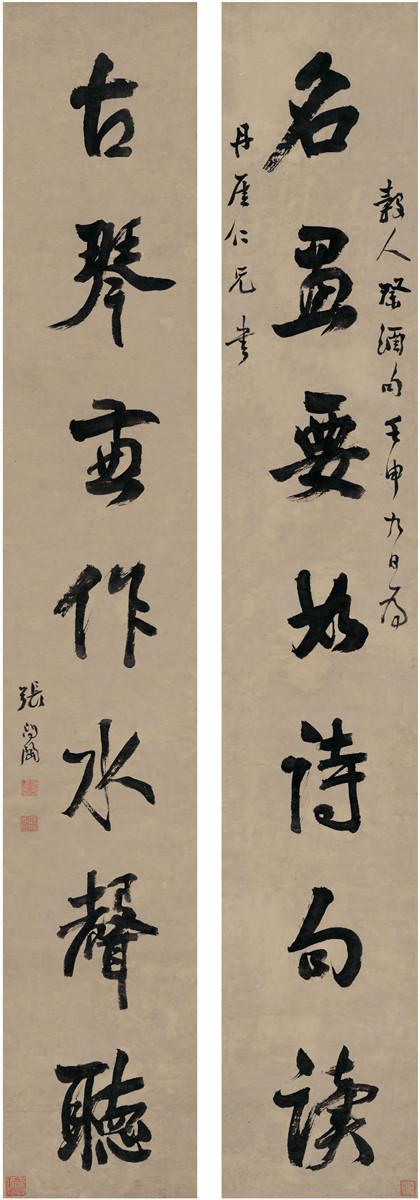 名畫要如詩句讀
穀人祭酒句壬申九日為
丹厓仁兄書
古琴兼作水聲聽
張問陶